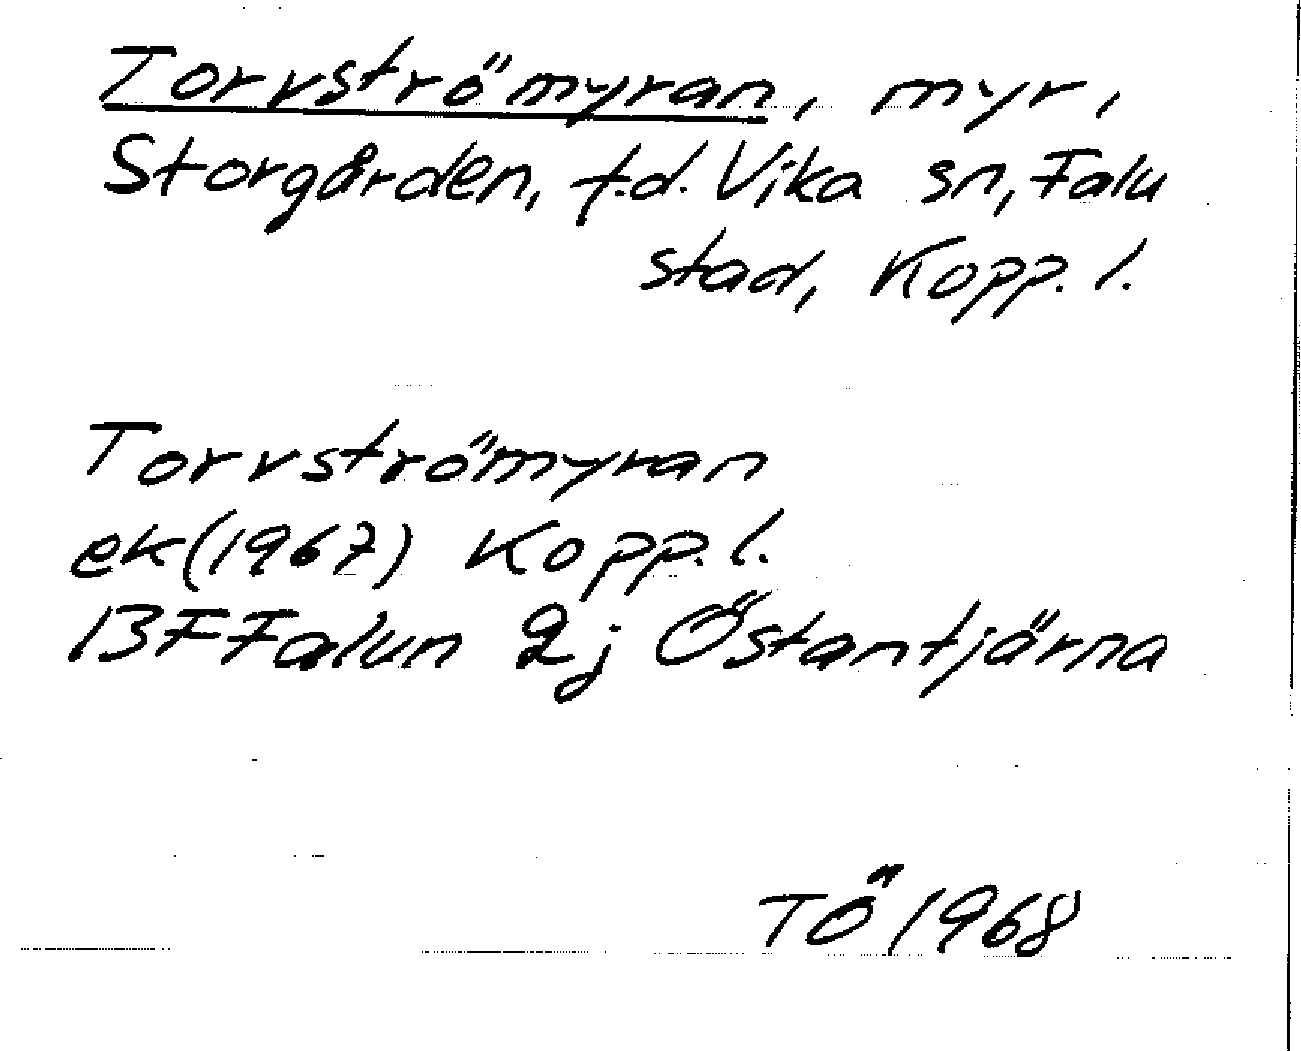 Torvströmyran, myr,
Storgården, f.d. Vika sn, Falu
stad, Kopp. l.
Torvströmyran
ek (1967) Kopp. l.
13F Falun 2j Östantjärna
TÖ 1968